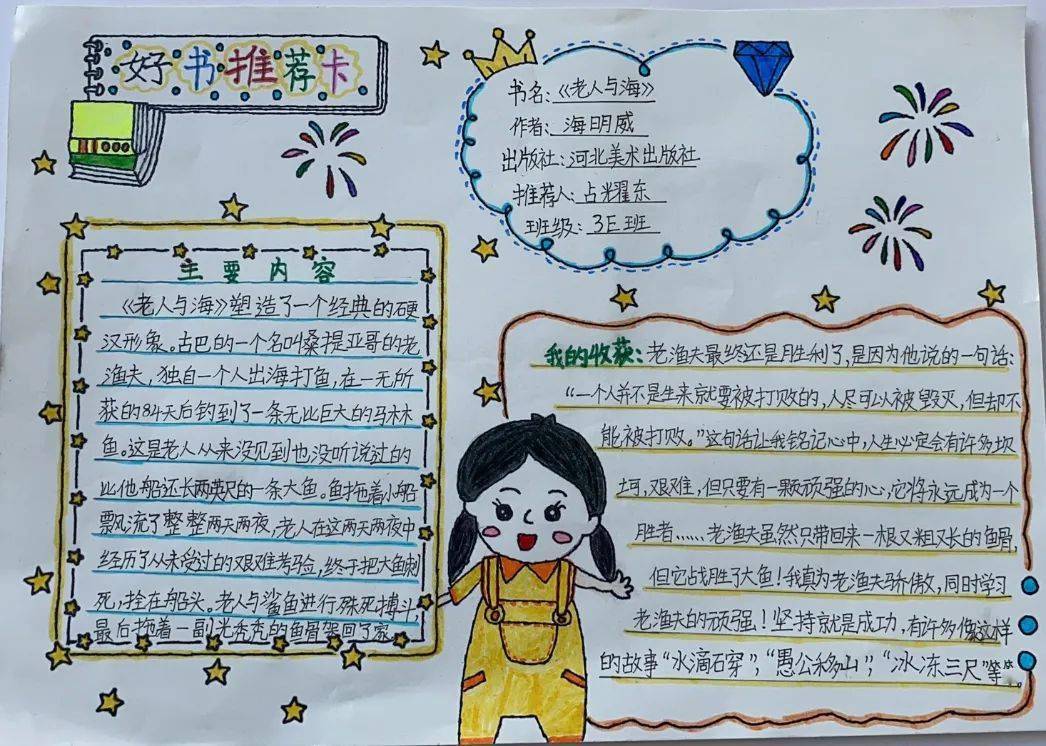 好书推荐卡
书名:《老人与海》
作者:海明威
出版社:河北美术出版社
推荐人:占耀东
班级:3E班
主要内容
《老人与海》塑造了一个经典的硬
汉形象。古巴的一个名叫桑提亚哥的老
渔夫,独自一个人出海打鱼,在一无所
获的84天后钓到了一条无比巨大的马林
鱼。这是老人从来没见到也没听说过的
比他船还长两英尺的一条大鱼。鱼拖着小船
漂流了整整两天两夜,老人在这两天两夜中
经历了从未受过的艰难考验,终于把大鱼刺
死,拴在船头。老人与鲨鱼进行殊死搏斗,
最后拖着一副光秃秃的鱼骨架回了家
我的收获:老渔夫最终还是胜利了,是因为他说的一句话:
“一个人并不是生来就要被打败的,人尽可以被毁灭,但却不
能被打败。”这句话让我铭记心中,人生必定会有许多坎
坷,艰难,但只要有一颗顽强的心,它将永远成为一个
胜者……老渔夫虽然只带回来一根又粗又长的鱼骨,
但它战胜了大鱼!我真为老渔夫骄傲,同时学习
老渔夫的顽强!坚持就是成功,有许多像这样
的故事“水滴石穿”,“愚公移山”,“冰冻三尺”等…